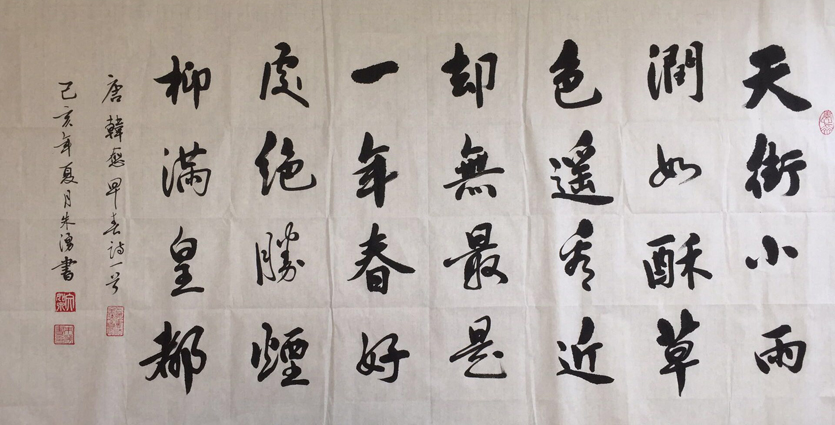 天街小雨
潤如酥草
色遥看近
却無最是
一年春好
處绝勝煙
柳满皇都
唐韓愈早春詩一首
己亥年夏月朱湧書